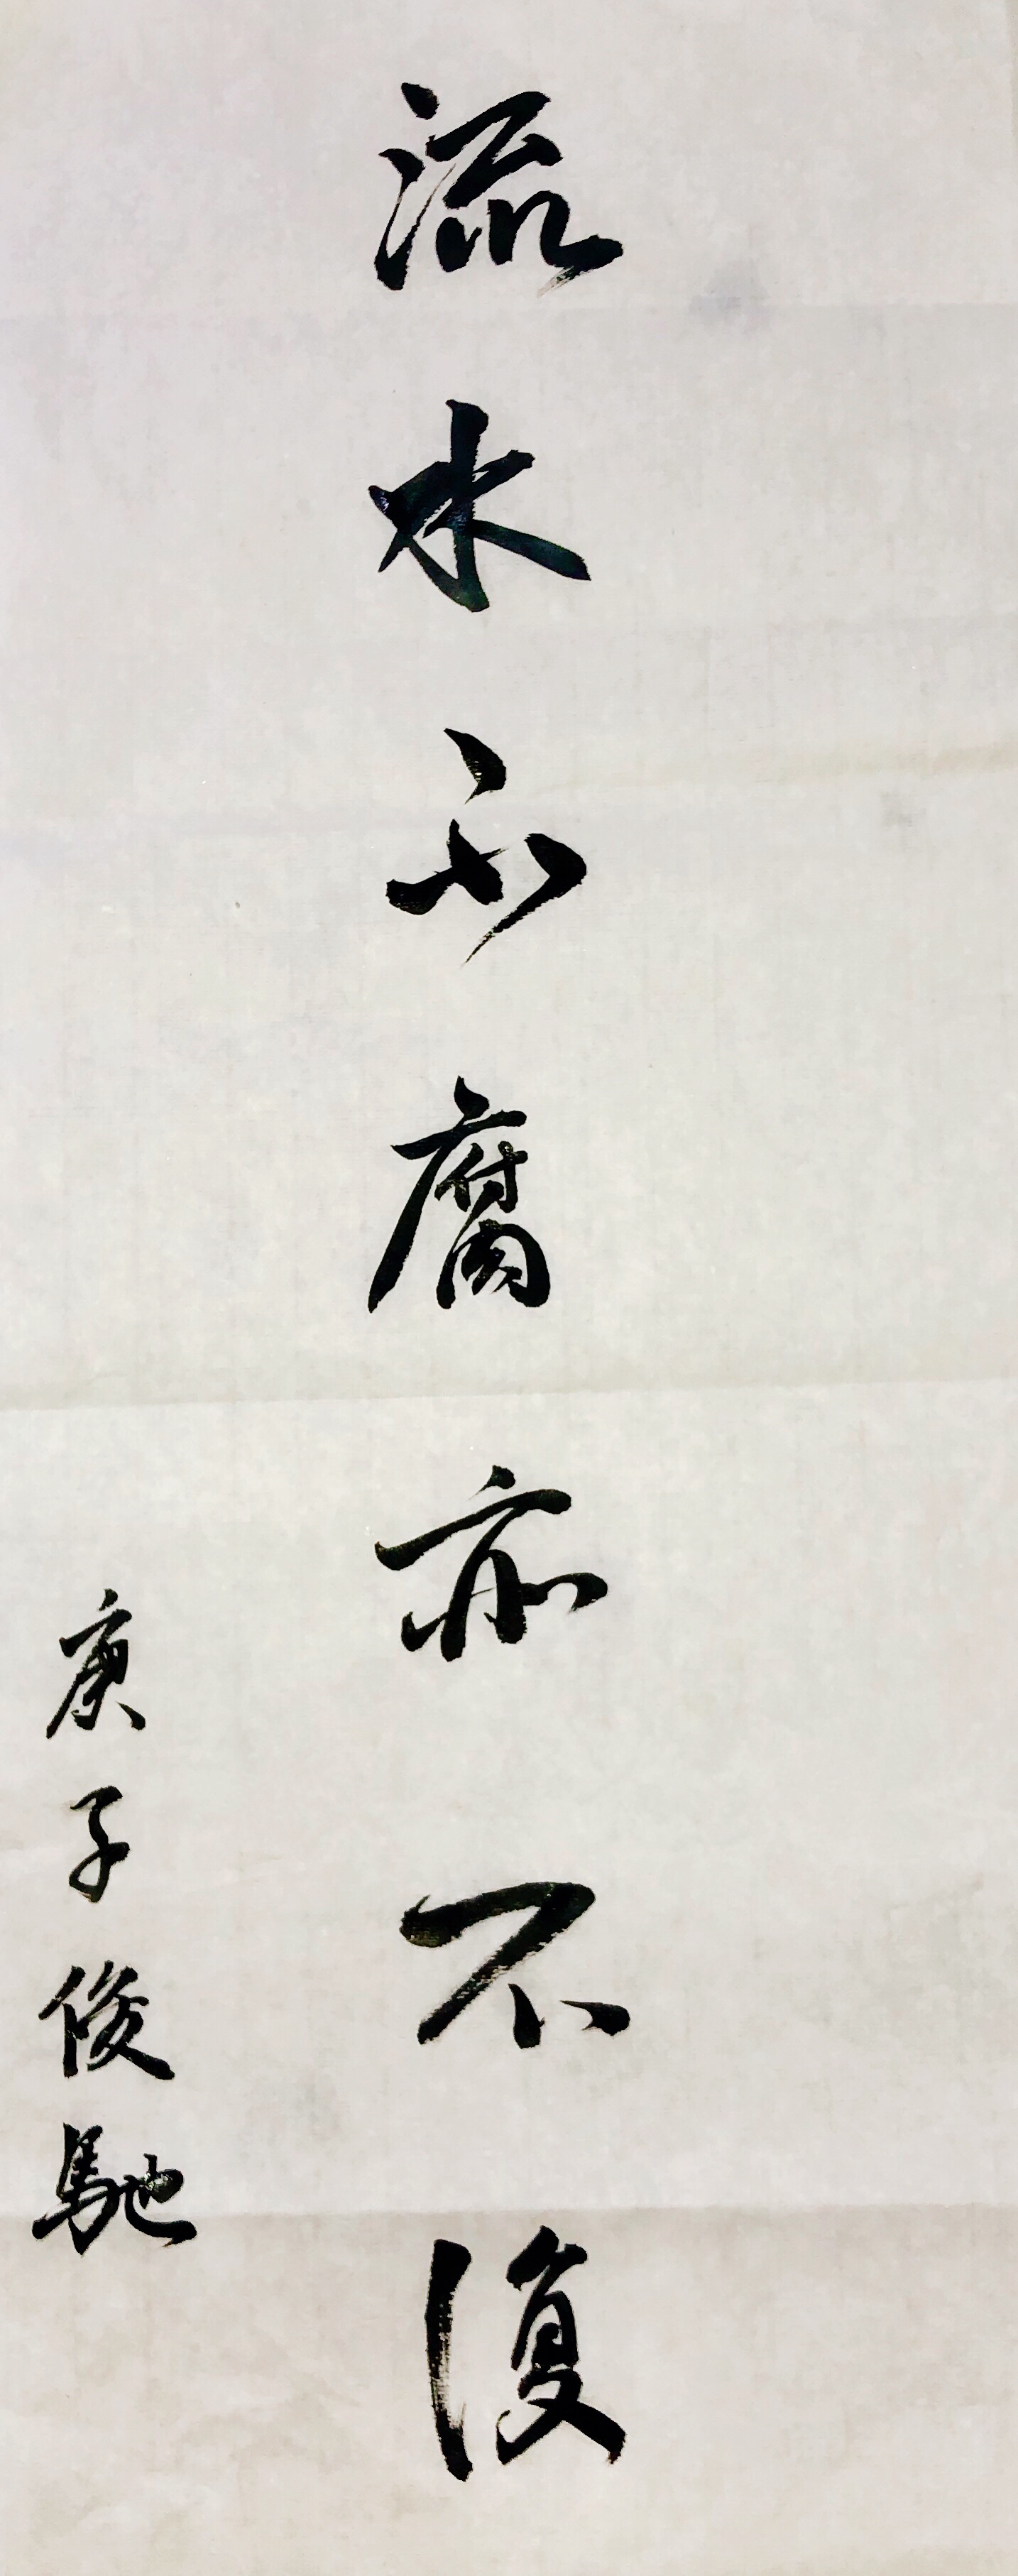 流水不腐亦不復
庚子俊馳